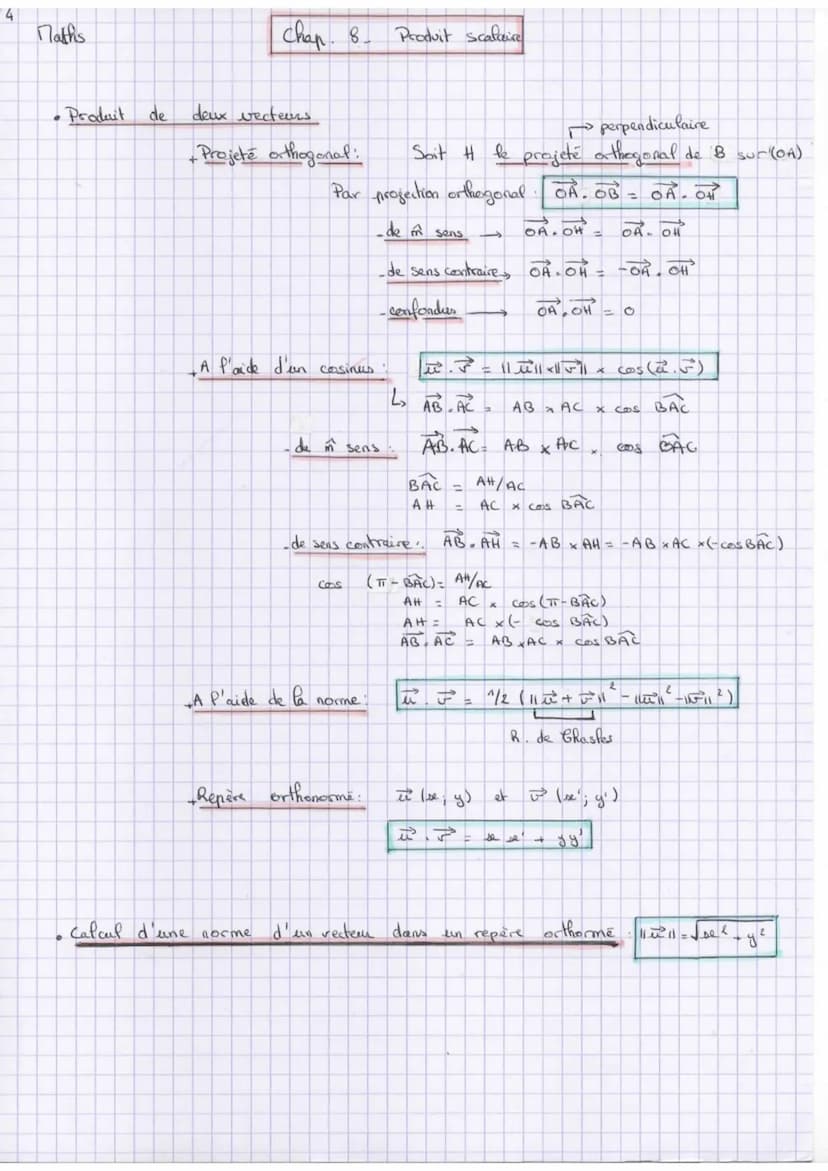 4
Maths
Chap. 8_ Produit scalaire
• Produit de deux vecteurs
→ perpendiculaire
+ Projeté orthogonal: Soit H le projeté orthogonal de B sur (OA)
Par projection orthogonal : \vec{OA} . \vec{OB} = \vec{OA} . \vec{OH}
- de m̂ sens → \vec{OA} . \vec{OH} = \vec{OA} . \vec{OH}
- de sens contraire → \vec{OA} . \vec{OH} = -\vec{OA} . \vec{OH}
- confondus → \vec{OA} . \vec{OH} = 0
+ A l'aide d'un cosinus : \vec{u} . \vec{v} = ||\vec{u}|| x ||\vec{v}|| x cos(\vec{u} . \vec{v})
↳ \vec{AB} . \vec{AC} = AB x AC x cos \widehat{BAC}
- de m̂ sens : \vec{AB} . \vec{AC} = AB x AC x cos \widehat{BAC}
\widehat{BAC} = AH/AC
AH = AC x cos \widehat{BAC}
- de sens contraire : \vec{AB} . \vec{AH} = -AB x AH = -AB x AC x (-cos \widehat{BAC})
cos (π - \widehat{BAC}) = AH/AC
AH = AC x cos (π - \widehat{BAC})
AH = AC x (- cos \widehat{BAC})
\vec{AB} . \vec{AC} = AB x AC x cos \widehat{BAC}
+ A l'aide de la norme : \vec{u} . \vec{v} = 1/2 (||\vec{u} + \vec{v}||² - ||\vec{u}||² - ||\vec{v}||²)
R. de Chasles
+ Repère orthonormé : \vec{u} (x ; y) et \vec{v} (x' ; y')
\vec{u} . \vec{v} = x x' + yy'
• Calcul d'une norme d'un vecteur dans un repère orthormé : ||\vec{u}|| = √x² + y²